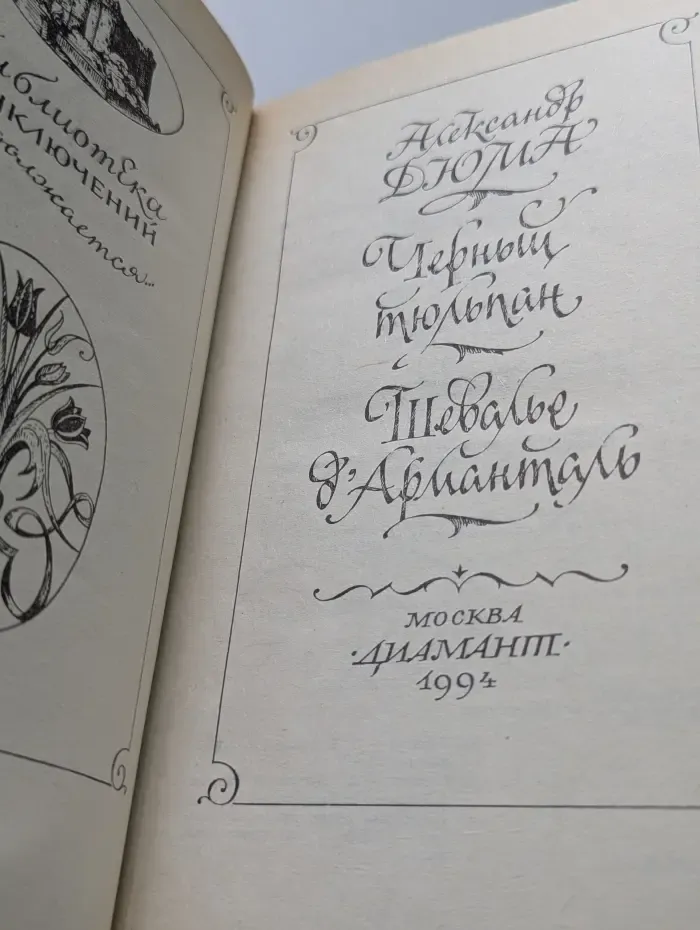 Библиотека
приключений
продолжается...
Александр
ДЮМА
Черный
тюльпан
Шевалье
д'Арманталь
МОСКВА
·ДИАМАНТ·
1994